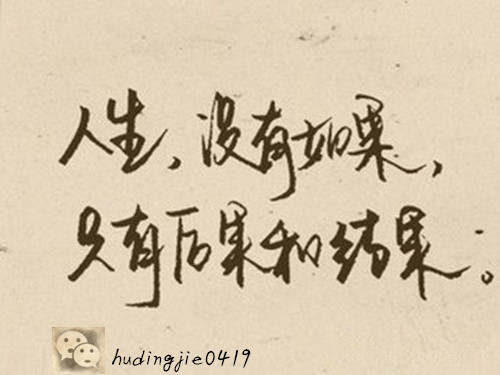 人生，没有如果，
只有后果和结果。
hudingjie0419